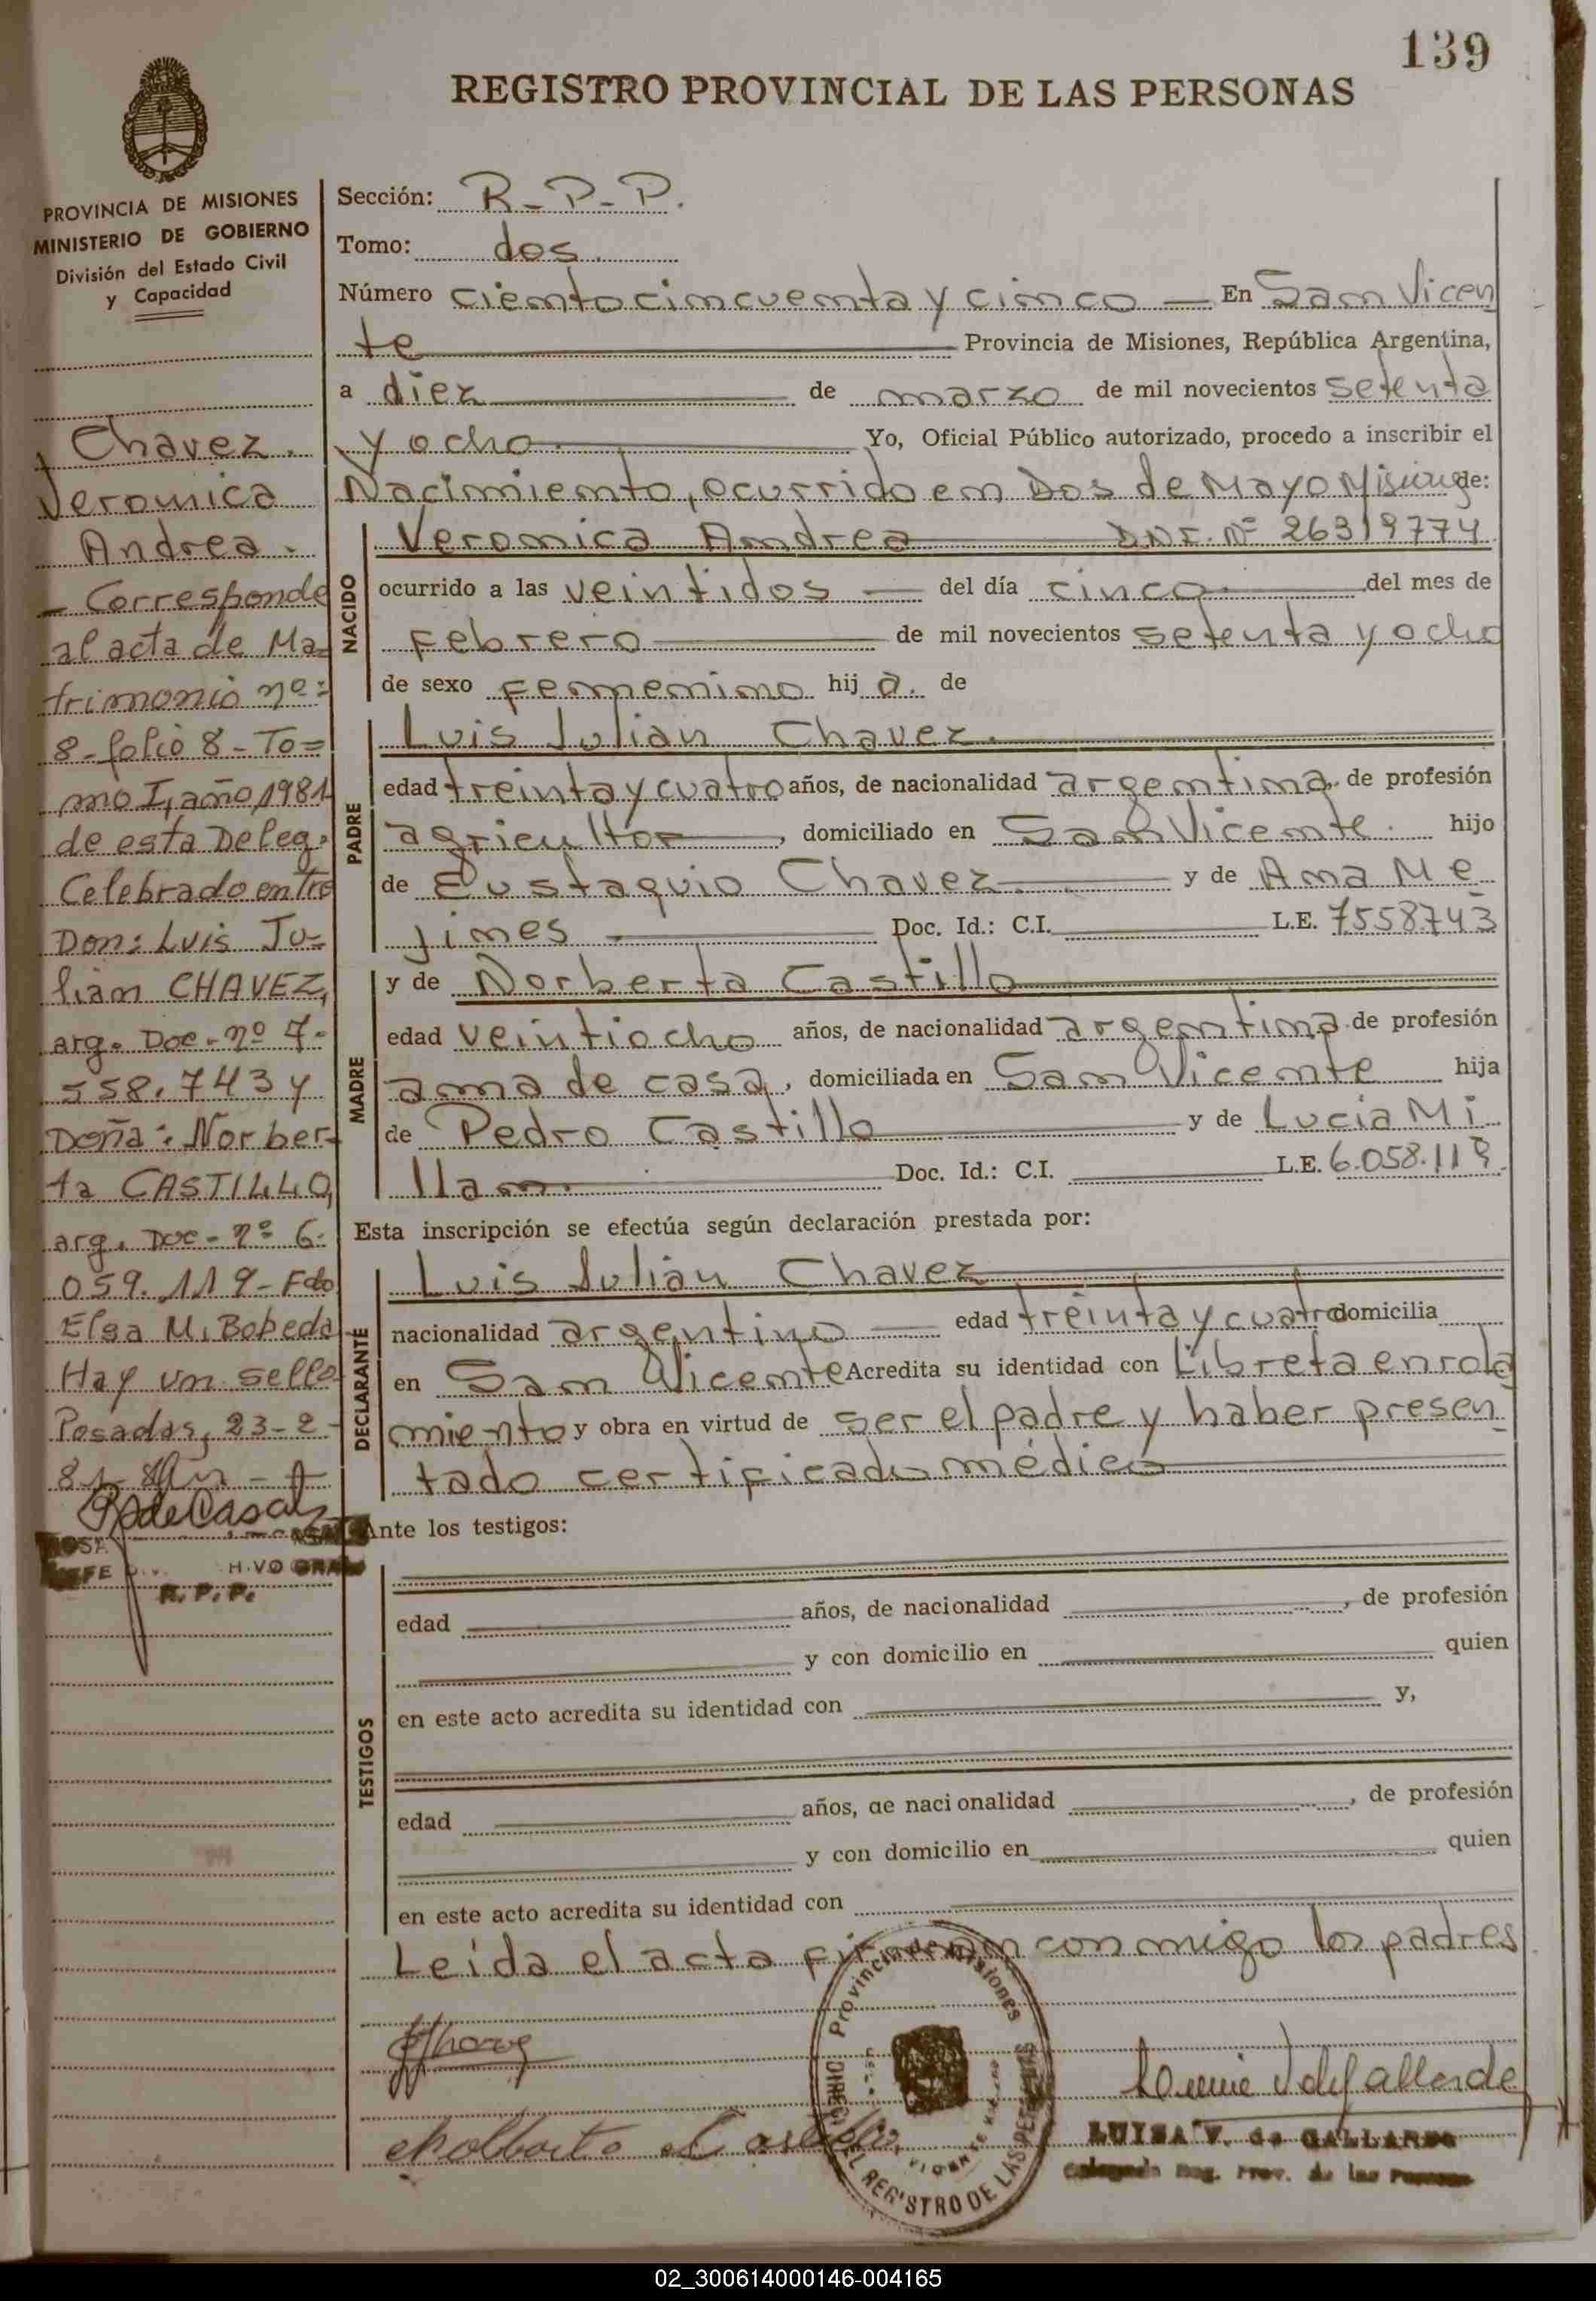 139
REGISTRO PROVINCIAL DE LAS PERSONAS
PROVINCIA DE MISIONES
MINISTERIO DE GOBIERNO
División del Estado Civil
y Capacidad
Chavez.
Veronica
Andrea.
- Corresponde
al acta de Ma=
trimonio nº:
8-folio 8-To=
mo I, año 1981
de esta Deleg.
Celebrado entre
Don: Luis Ju=
lian CHAVEZ,
arg. Doc-nº 7-
558.743 y
Doña: Norber-
ta CASTILLO,
arg. Doc-nº 6.
059.119-Fdo
Elsa M. Bobeda
Hay un sello
Posadas, 23-2-
81
R. P. P.
Sección: R-P-P.
Tomo: dos.
Número ciento cincuenta y cinco — En San Vicen
te Provincia de Misiones, República Argentina,
a diez de marzo de mil novecientos setenta
y ocho. Yo, Oficial Público autorizado, procedo a inscribir el
Nacimiento, ocurrido en Dos de Mayo Misiones de:
NACIDO
Veronica Andrea DNI. Nº 26319774
ocurrido a las veintidos — del día cinco del mes de
febrero de mil novecientos setenta y ocho
de sexo femenino hij a. de
PADRE
Luis Julian Chavez.
edad treinta y cuatro años, de nacionalidad argentina, de profesión
agricultor, domiciliado en San Vicente. hijo
de Eustaquio Chavez y de Ana Me
jines Doc. Id.: C.I. L.E. 7558743
MADRE
y de Norberta Castillo
edad veintiocho años, de nacionalidad argentina de profesión
ama de casa, domiciliada en San Vicente hija
de Pedro Castillo y de Lucia Mi
llan. Doc. Id.: C.I. L.E. 6.058.119
Esta inscripción se efectúa según declaración prestada por:
DECLARANTE
Luis Julian Chavez
nacionalidad argentino — edad treinta y cuatro domicilia
en San Vicente Acredita su identidad con Libreta enrola
miento y obra en virtud de ser el padre y haber presen
tado certificado médico
Ante los testigos:
TESTIGOS
edad años, de nacionalidad , de profesión
y con domicilio en quien
en este acto acredita su identidad con y,
edad años, de nacionalidad , de profesión
y con domicilio en quien
en este acto acredita su identidad con
Leida el acta firman conmigo los padres
Provincia de Misiones
REGISTRO DE LAS PERSONAS
LUISA V. de GALLARDO
Reg. Prov. de las Personas
02_300614000146-004165